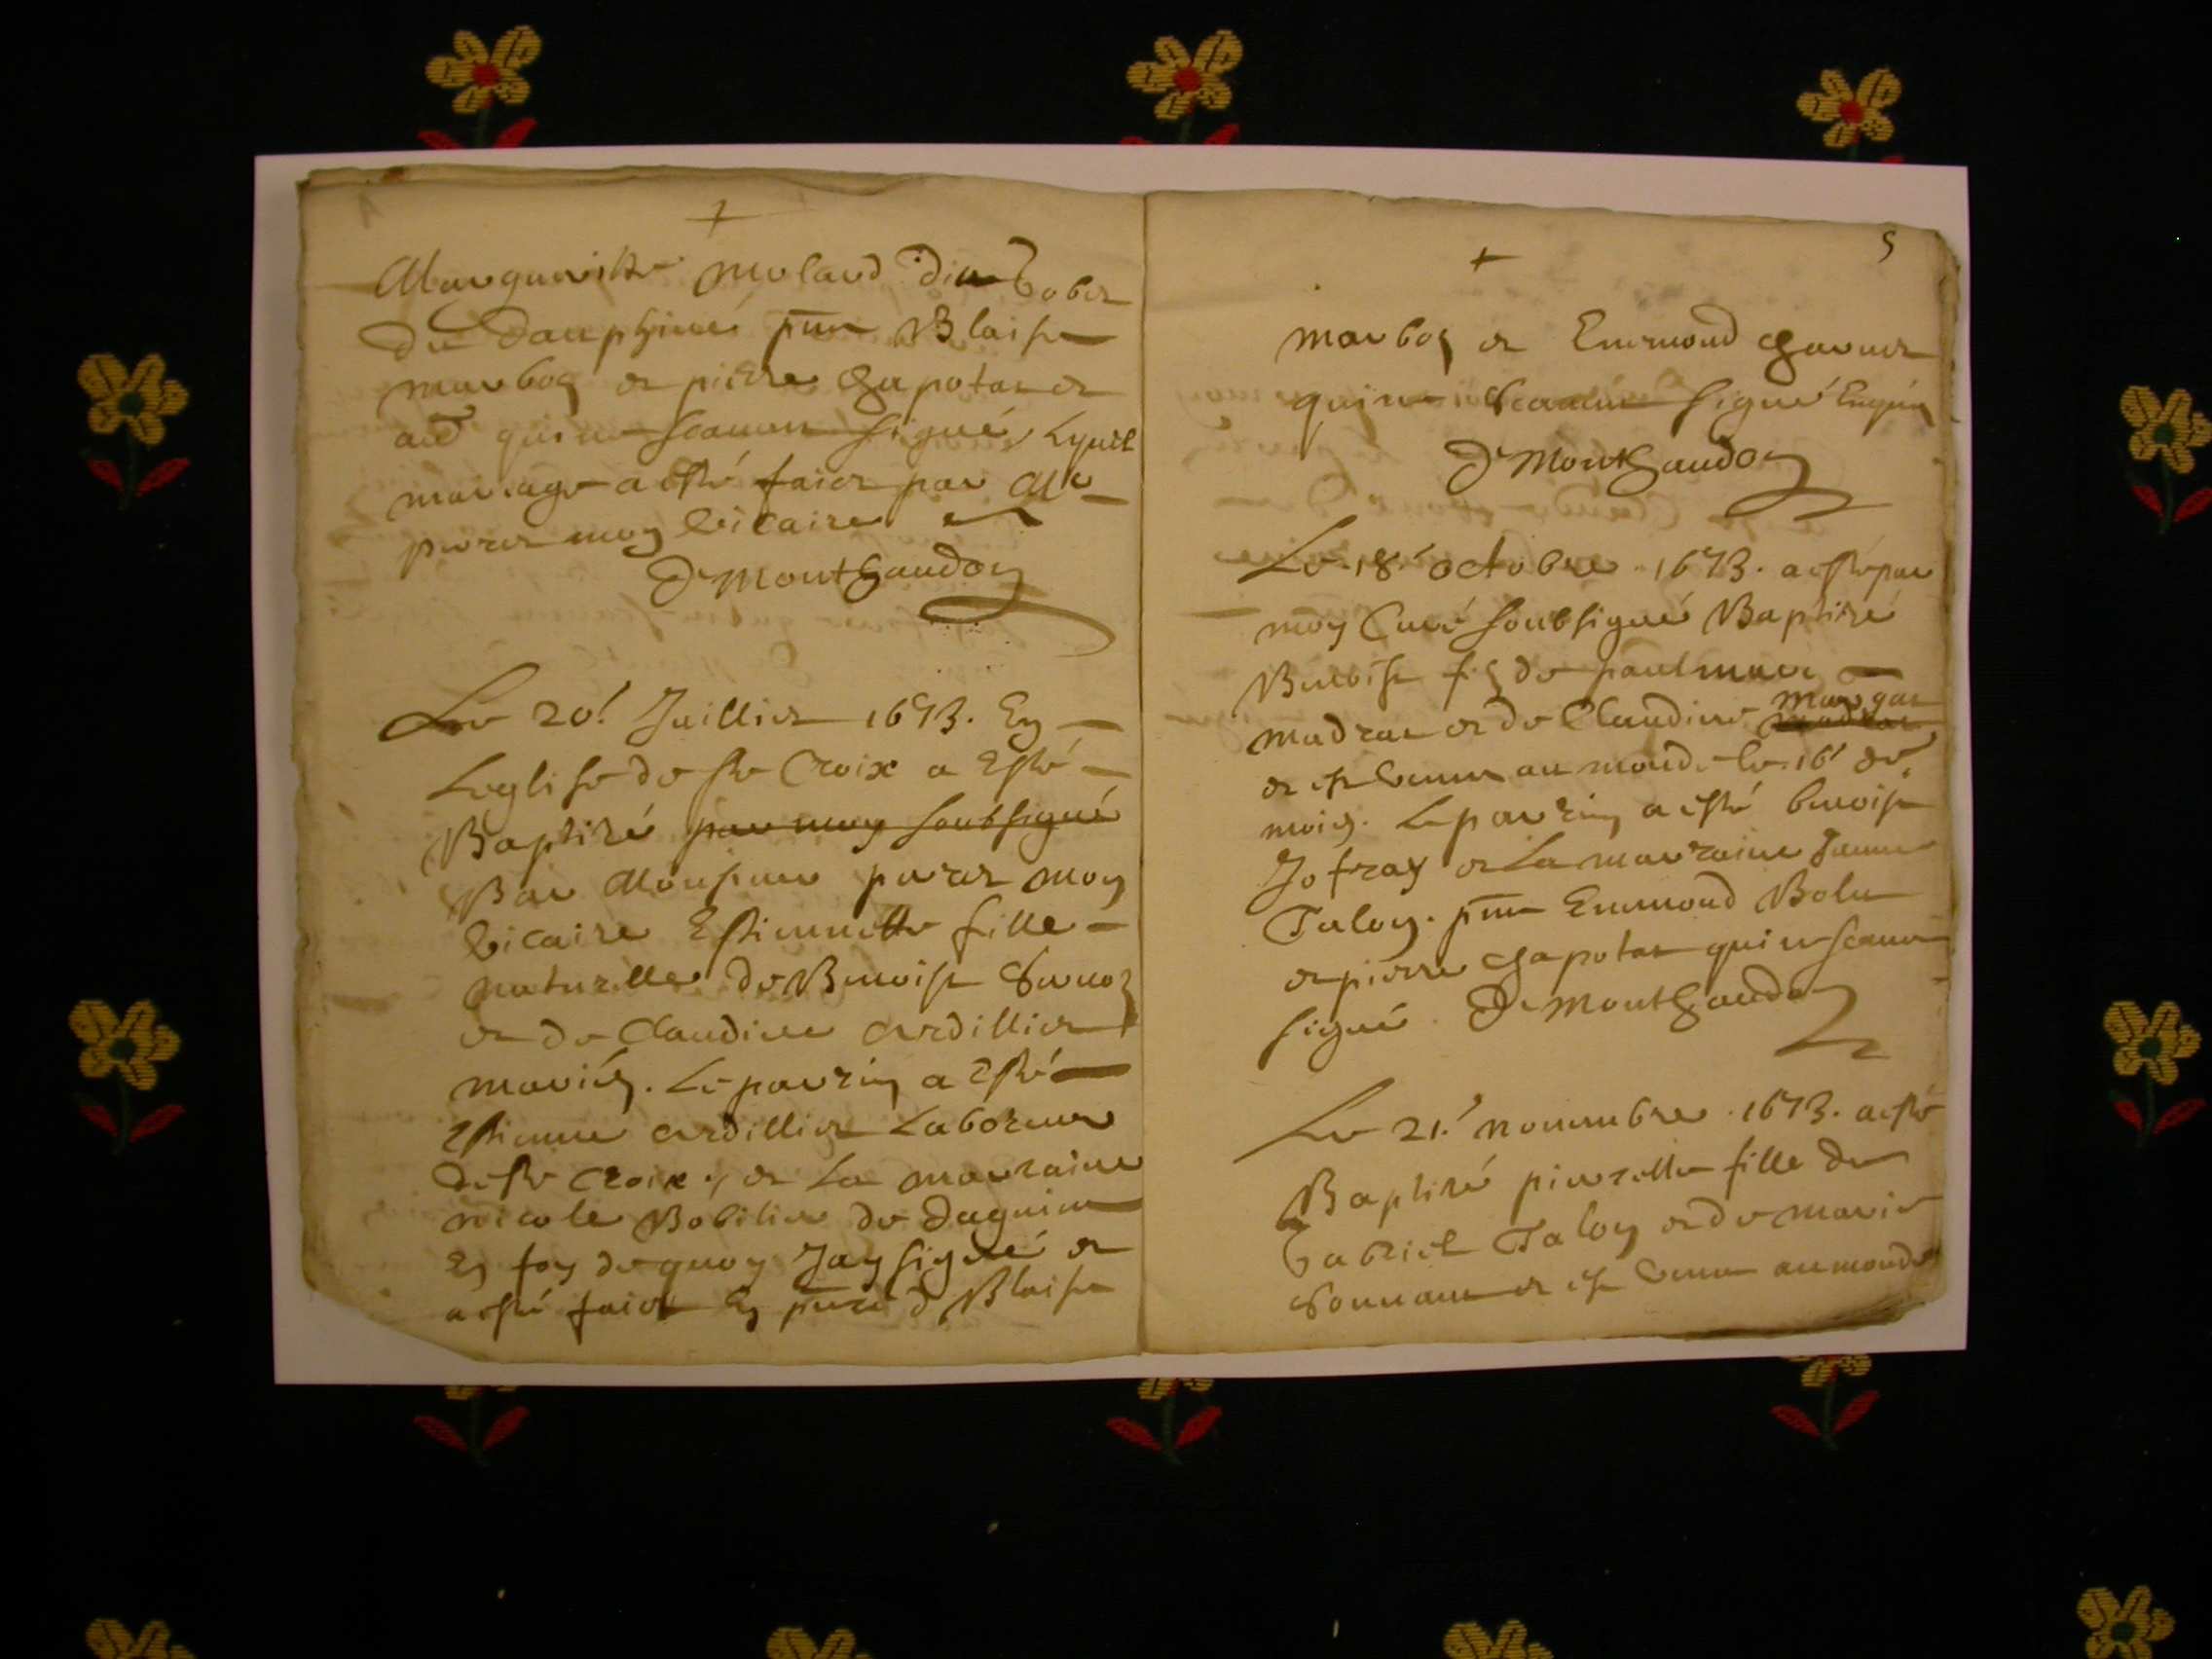 +
Marguerite molard
du Dauphiné pnt Blaise
marbos et pierre Chapotat et
qui ne scauent signé, Lequel
mariage a esté faict par Mr
peret moy vicaire
De Montchaudon
Le 20e Juillier 1673. En
Leglise de Ste Croix a Esté
Baptizé par moy soubsigné
Par Monsieur peret moy
vicaire Estiennette fille
naturelle de Benoist
et de Claudine Ardillier
mariés. Le parrin a Esté
Estienne Ardillier Laboreur
de Ste Croix, et La marraine
nicole
En foy de quoy Jay signé et
a esté faict En pnce d Blaise
5
+
marbos et Enemond
qui ne scauent signé Enquis
De Montchaudon
Le 18e octobre 1673. a esté par
moy Curé soubsigné Baptizé
Benoist fis de
madrat et de Claudine margat
et est venu au monde le 16e du
mois. Le parrin a esté benoist
Jofray et La marraine Janne
Talon. pnt Enemond
et pierre Chapotat qui ne scauent
signé. De Montchaudon
Le 21e nouembre 1673. a esté
Baptizé pierrette fille de
Gabriel Talon et de marie
et est venue au monde